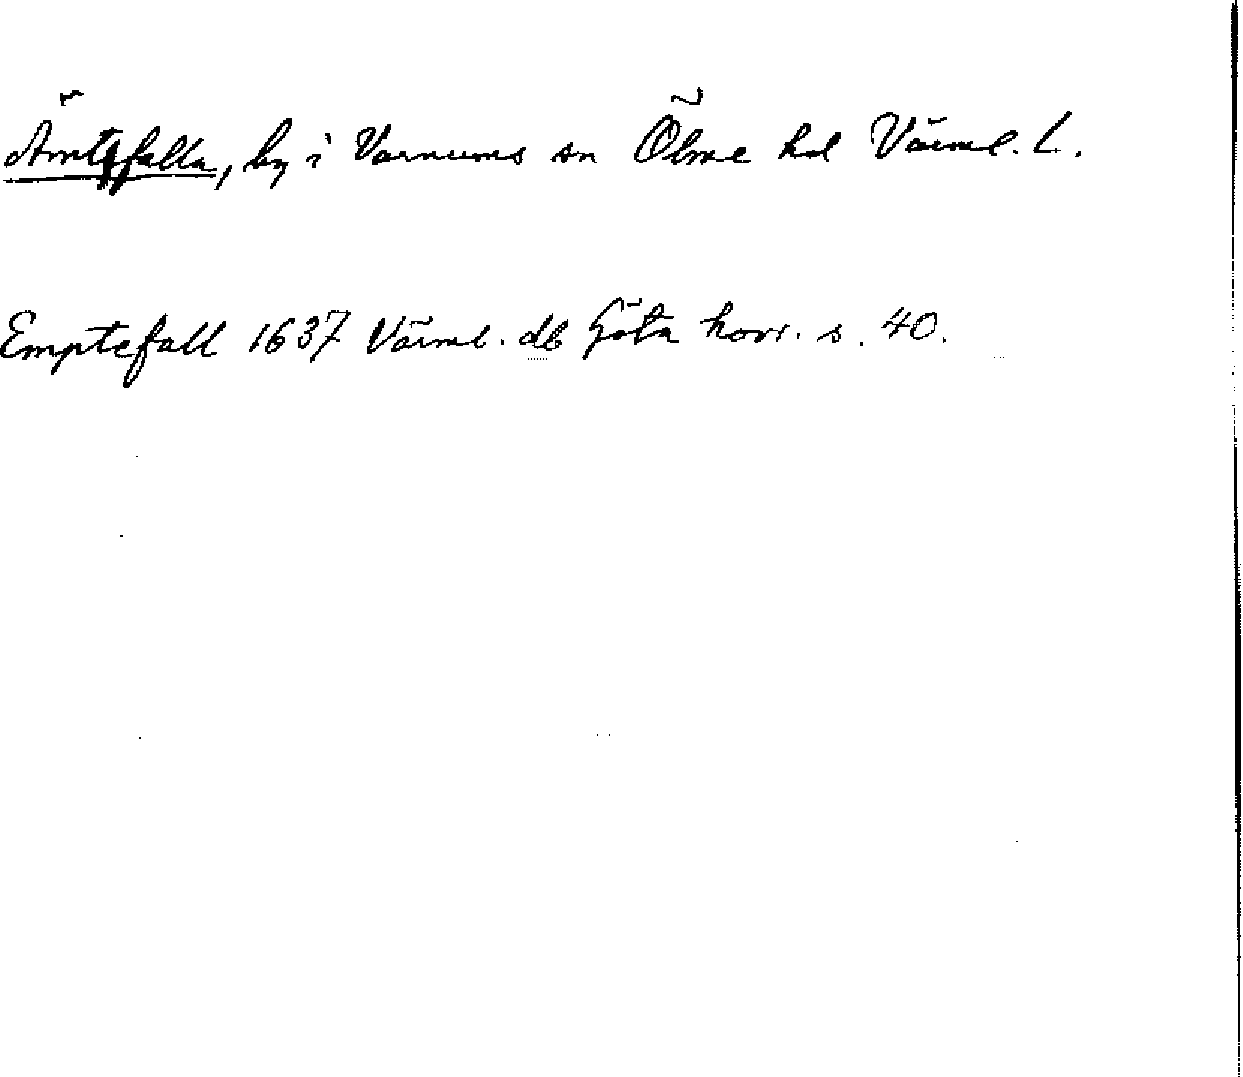 Ämtefalla, by i Varnums sn Ölme hd Värml. L.
Emptefall 1637 Värml. db Göta hovr. s. 40.